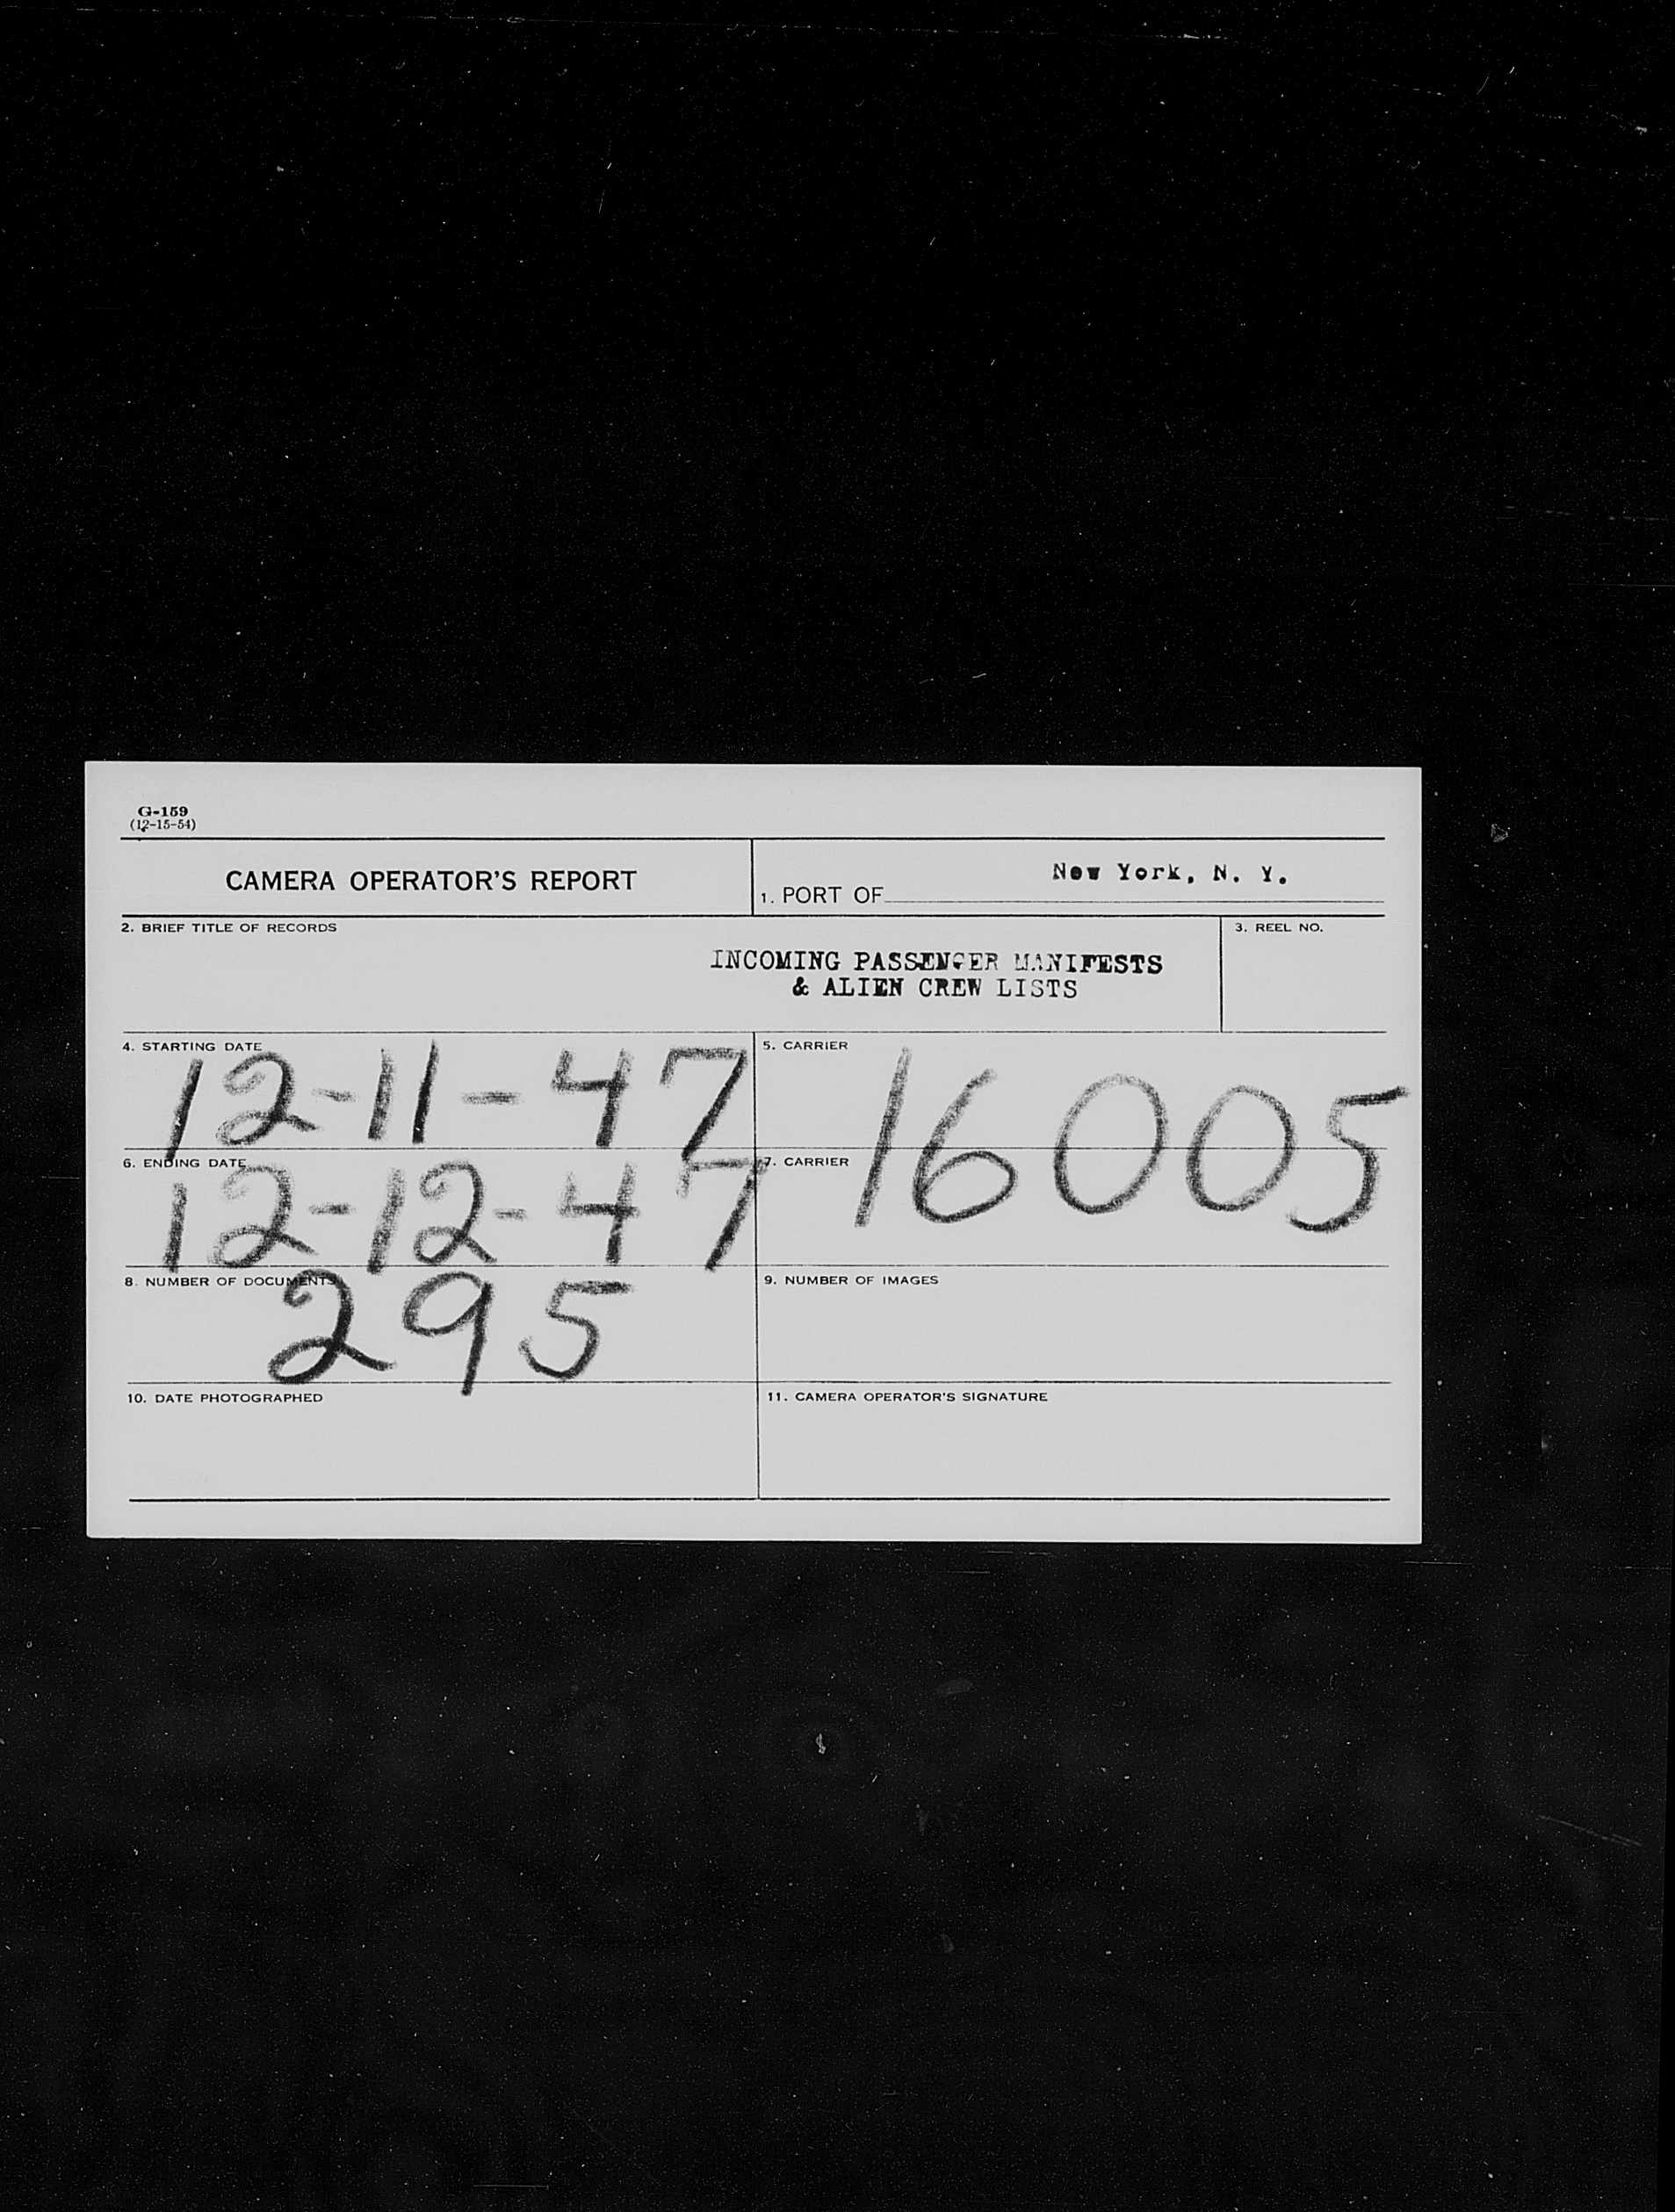 G-159
(12-15-54)
CAMERA OPERATOR'S REPORT
1. PORT OF New York, N. Y.
2. BRIEF TITLE OF RECORDS
INCOMING PASSENGER MANIFESTS
& ALIEN CREW LISTS
3. REEL NO.
4. STARTING DATE
12-11-47
5. CARRIER
16005
6. ENDING DATE
12-12-47
7. CARRIER
8. NUMBER OF DOCUMENTS
295
9. NUMBER OF IMAGES
10. DATE PHOTOGRAPHED
11. CAMERA OPERATOR'S SIGNATURE